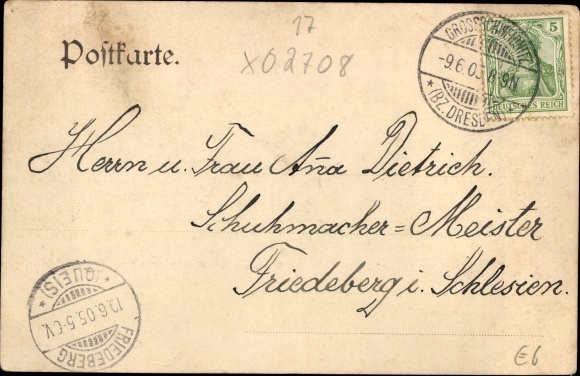 17
X02708
Postkarte.
5
DEUTSCHES REICH
-9.6.05. 8-9N.
* (BZ. DRESDEN)
Herrn u. Frau Aña Dietrich.
Schuhmacher=Meister
Friedeberg i. Schlesien.
* (QUEIS) *
10.6.05. 5-6V.
FRIEDEBERG
E6